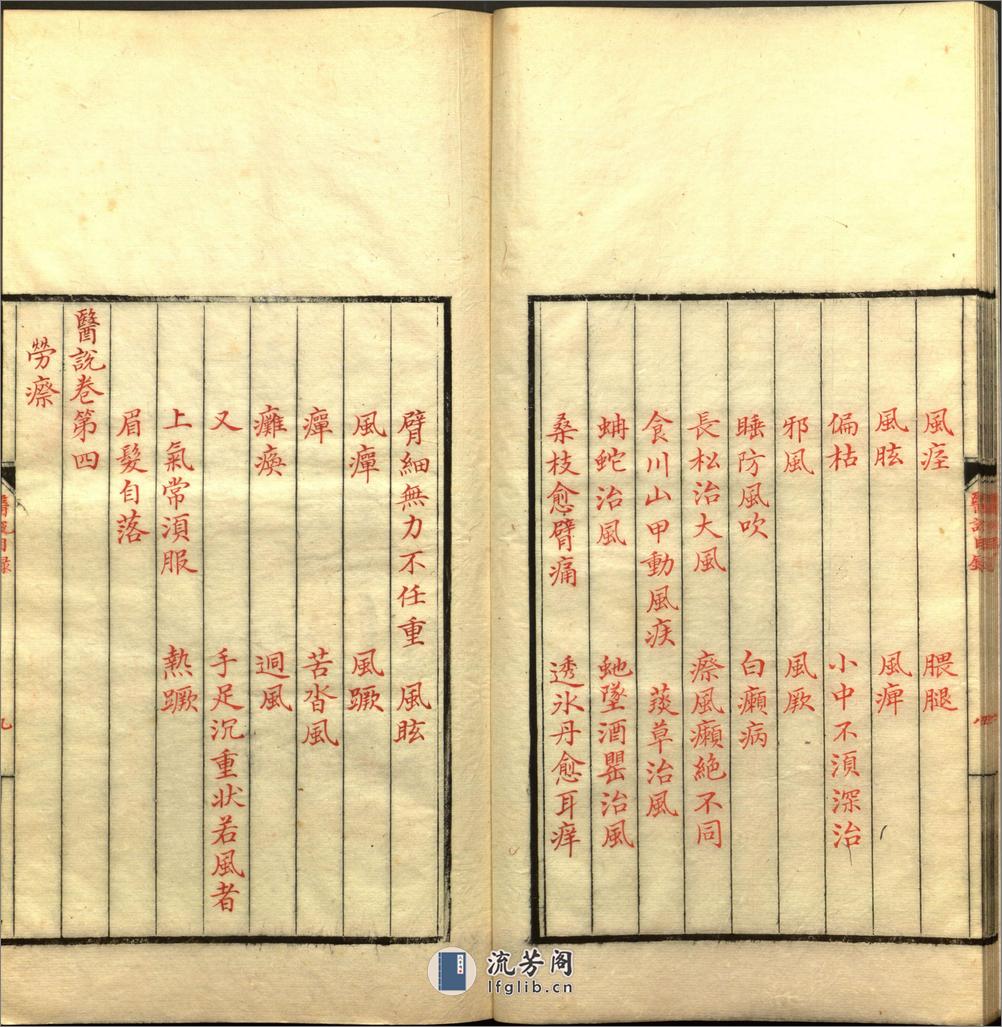 風痓　腲腿
風眩　風痺
偏枯　小中不湏深治
邪風　風厥
睡防風吹　白癩病
長松治大風　瘵風癩絶不同
食川山甲動風疾　菼草治風
蚺蛇治風　虵墜酒罌治風
桑枝愈臂痛　透氷丹愈耳痒
醫說目録
臂細無力不任重　風眩
風癉　風蹶
癉　苦沓風
癱瘓　迵風
又　手足沉重状若風者
上氣常湏服　熱蹶
眉髮自落
醫說卷第四
勞瘵
醫說目録
九
流芳阁
lfglib.cn